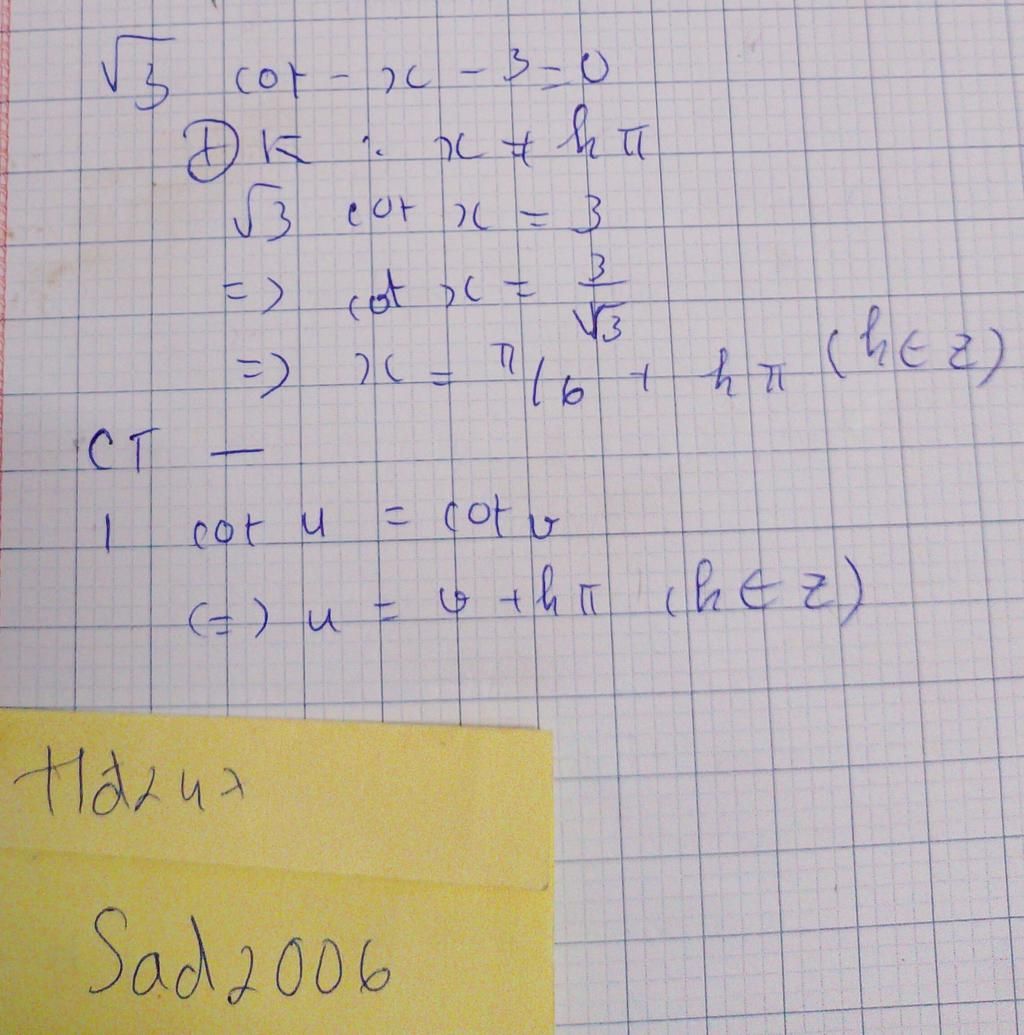 √3 cot - x - 3 = 0
ĐK : x ≠ kπ
√3 cot x = 3
=> cot x = 3/√3
=> x = π/6 + kπ (k ∈ Z)
CT —
1 cot u = cot v
(=) u = v + kπ (k ∈ Z)
Hd247
Sad2006